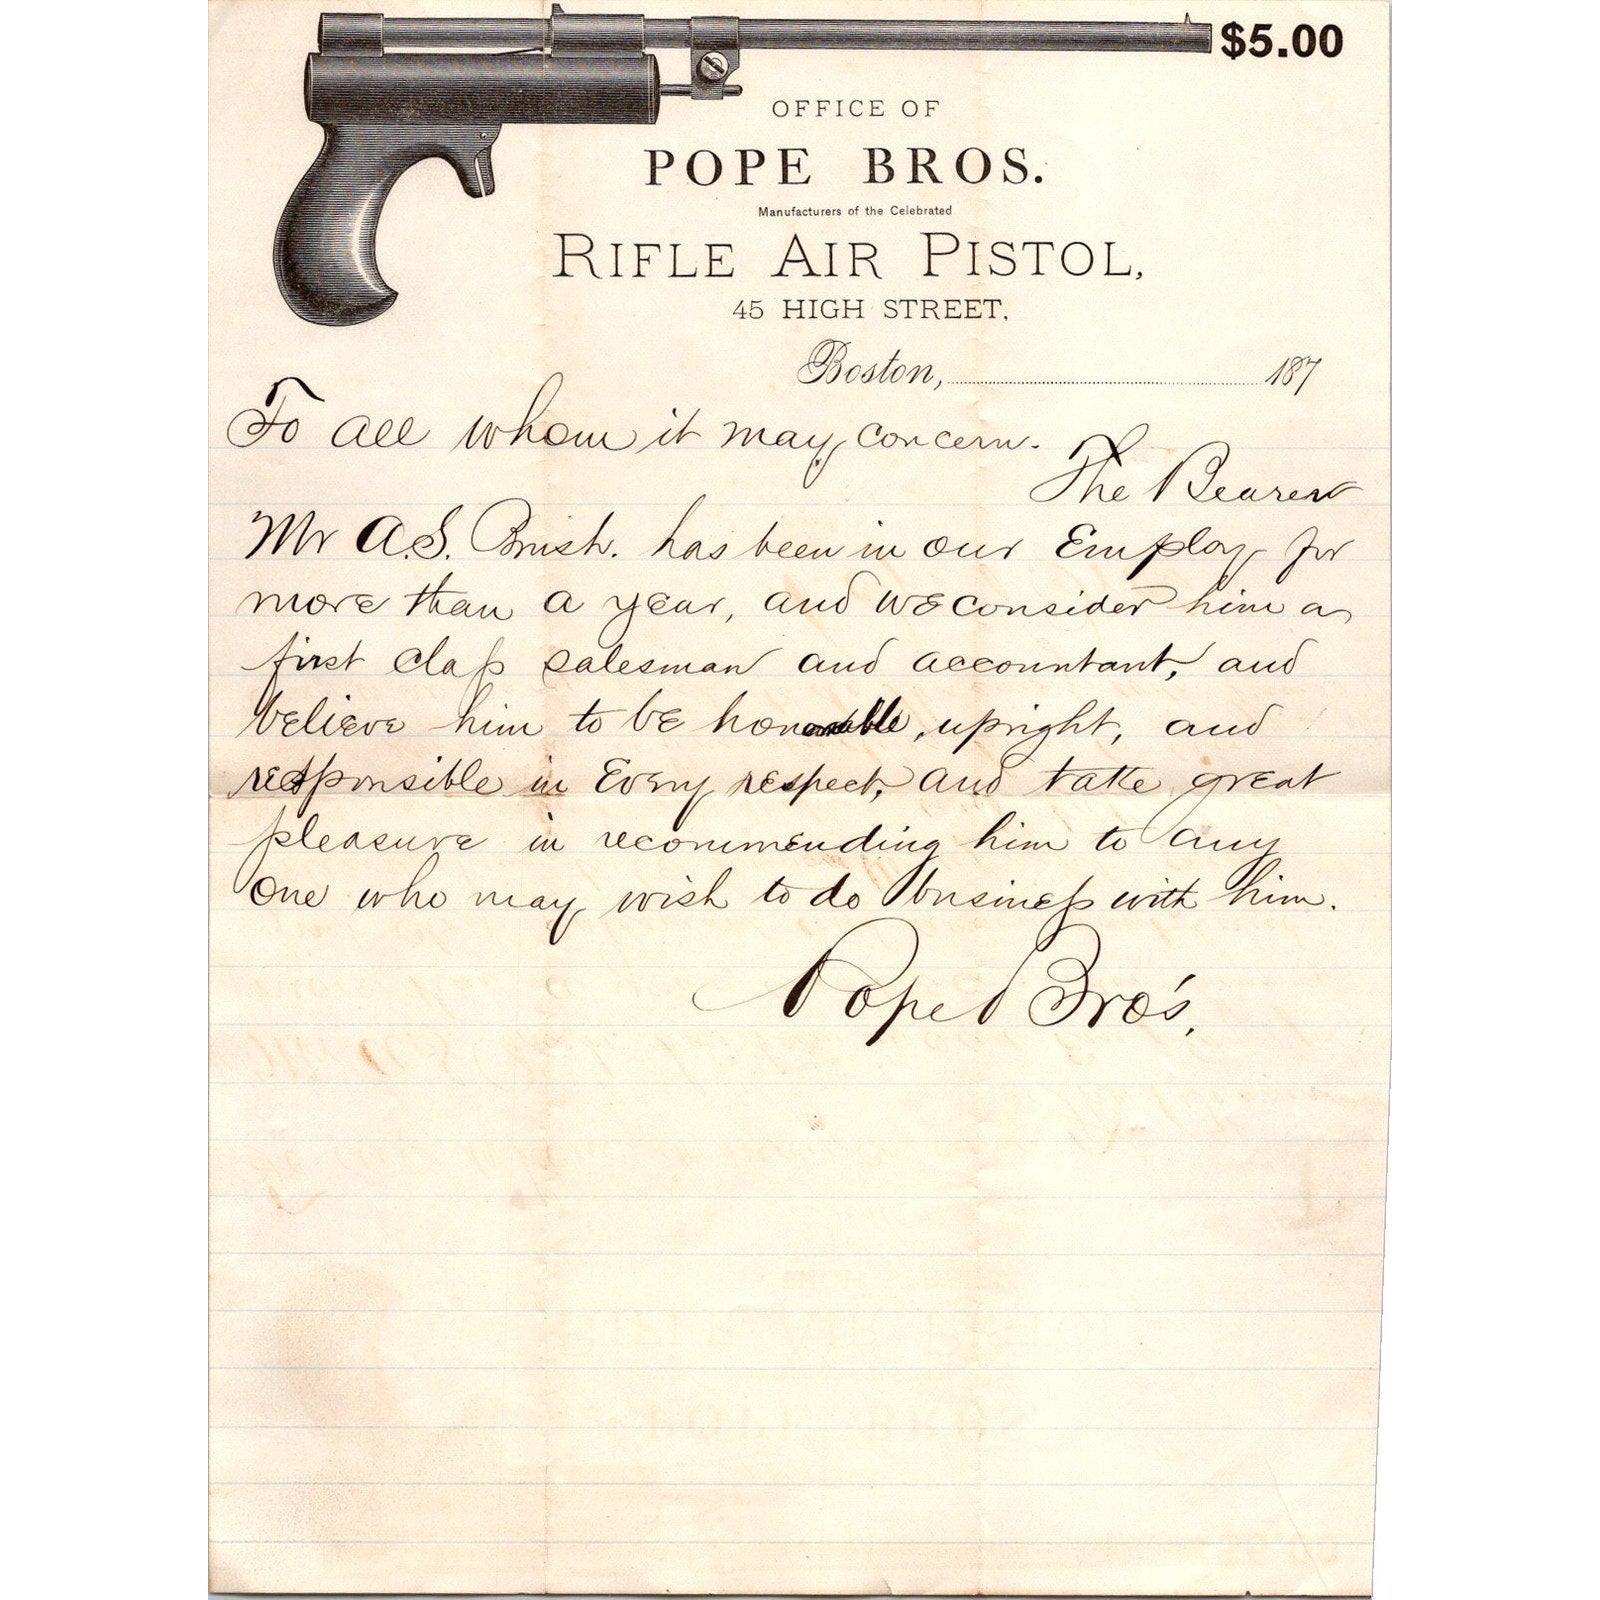 $5.00
OFFICE OF
POPE BROS.
Manufacturers of the Celebrated
RIFLE AIR PISTOL,
45 HIGH STREET,
Boston, 187
To all whom it may concern.
The Bearer
Mr A.S. has been in our Employ for
more than a year, and we consider him a
first class salesman and accountant, and
believe him to be honorable, upright, and
responsible in Every respect, and take great
pleasure in recommending him to any
one who may wish to do business with him.
Pope Bro's.